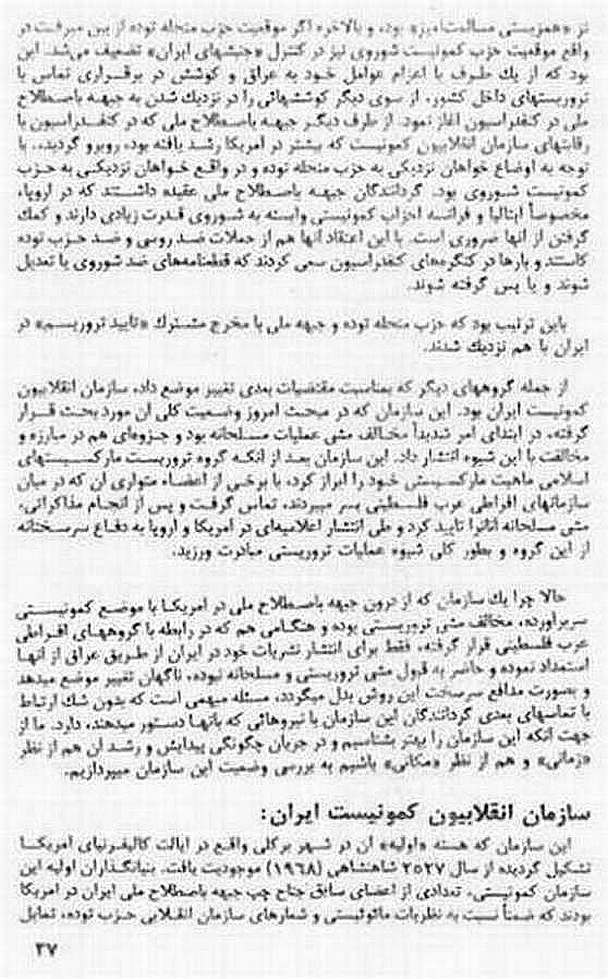 تز «همزیستی مسالمت‌آمیز» بوده و بالاخره اگر موقعیت حزب منحله توده از بین میرفت در
واقع موقعیت حزب کمونیست شوروی نیز در کنترل «جنبشهای ایران» تضعیف می‌شد. این
بود که از یك طرف با اعزام عوامل خود به عراق و کوشش در برقراری تماس با
تروریستهای داخل کشور، از سوی دیگر کوششهائی را در نزدیك شدن به جبهه باصطلاح
ملی در کنفدراسیون آغاز نمود. از طرف دیگر جبهه باصطلاح ملی که در کنفدراسیون با
رقابتهای سازمان انقلابیون کمونیست که بیشتر در امریکا رشد یافته بود، روبرو گردید، با
توجه به اوضاع خواهان نزدیکی به حزب منحله توده و در واقع خواهان نزدیکی به حزب
کمونیست شوروی بود. گردانندگان جبهه باصطلاح ملی عقیده داشتند که در اروپا،
مخصوصاً ایتالیا و فرانسه احزاب کمونیستی وابسته به شوروی قدرت زیادی دارند و کمك
گرفتن از آنها ضروری است. با این اعتقاد آنها هم از حملات ضد روسی و ضد حزب توده
کاستند و بارها در کنگره‌های کنفدراسیون سعی کردند که قطعنامه‌های ضد شوروی یا تعدیل
شوند و یا پس گرفته شوند.
باین ترتیب بود که حزب منحله توده و جبهه ملی با مخرج مشترك «تایید تروریسم» در
ایران با هم نزدیك شدند.
از جمله گروههای دیگر که بمناسبت مقتضیات بعدی تغییر موضع داد، سازمان انقلابیون
کمونیست ایران بود. این سازمان که در مبحث امروز وضعیت کلی آن مورد بحث قرار
گرفته، در ابتدای امر شدیداً مخالف مشی عملیات مسلحانه بود و جزوه‌ای هم در مبارزه و
مخالفت با این شیوه انتشار داد. این سازمان بعد از آنکه گروه تروریست مارکسیستهای
اسلامی ماهیت مارکسیستی خود را ابراز کرد، با برخی از اعضاء متواری آن که در میان
سازمانهای افراطی عرب فلسطینی بسر میبردند، تماس گرفت و پس از انجام مذاکراتی،
مشی مسلحانه آنانرا تایید کرد و طی انتشار اعلامیه‌ای در امریکا و اروپا به دفاع سرسختانه
از این گروه و بطور کلی شیوه عملیات تروریستی مبادرت ورزید.
حالا چرا یك سازمان که از درون جبهه باصطلاح ملی در امریکا با موضع کمونیستی
سربرآورده، مخالف مشی تروریستی بوده و هنگامی هم که در رابطه با گروههای افراطی
عرب فلسطینی قرار گرفته، فقط برای انتشار نشریات خود در ایران از طریق عراق از آنها
استمداد نموده و حاضر به قبول مشی تروریستی و مسلحانه نبوده، ناگهان تغییر موضع میدهد
و بصورت مدافع سرسخت این روش بدل میگردد، مسئله مبهمی است که بدون شك ارتباط
با تماسهای بعدی گردانندگان این سازمان با نیروهائی که بآنها دستور میدهند، دارد. ما از
جهت آنکه این سازمان را بهتر بشناسیم و در جریان چگونگی پیدایش و رشد آن هم از نظر
«زمانی» و هم از نظر «مکانی» باشیم به بررسی وضعیت این سازمان میپردازیم.
سازمان انقلابیون کمونیست ایران:
این سازمان که هسته «اولیه» آن در شهر برکلی واقع در ایالت کالیفرنیای آمریکا
تشکیل گردیده از سال ۲۵۲۷ شاهنشاهی (۱۹٦۸) موجودیت یافت. بنیانگذاران اولیه این
سازمان کمونیستی، تعدادی از اعضای سابق جناح چپ جبهه باصطلاح ملی ایران در امریکا
بودند که ضمناً نسبت به نظریات مائوئیستی و شعارهای سازمان انقلابی حزب توده، تمایل
۳۷